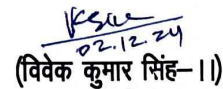 02.12.24
(विवेक कुमार सिंह-II)